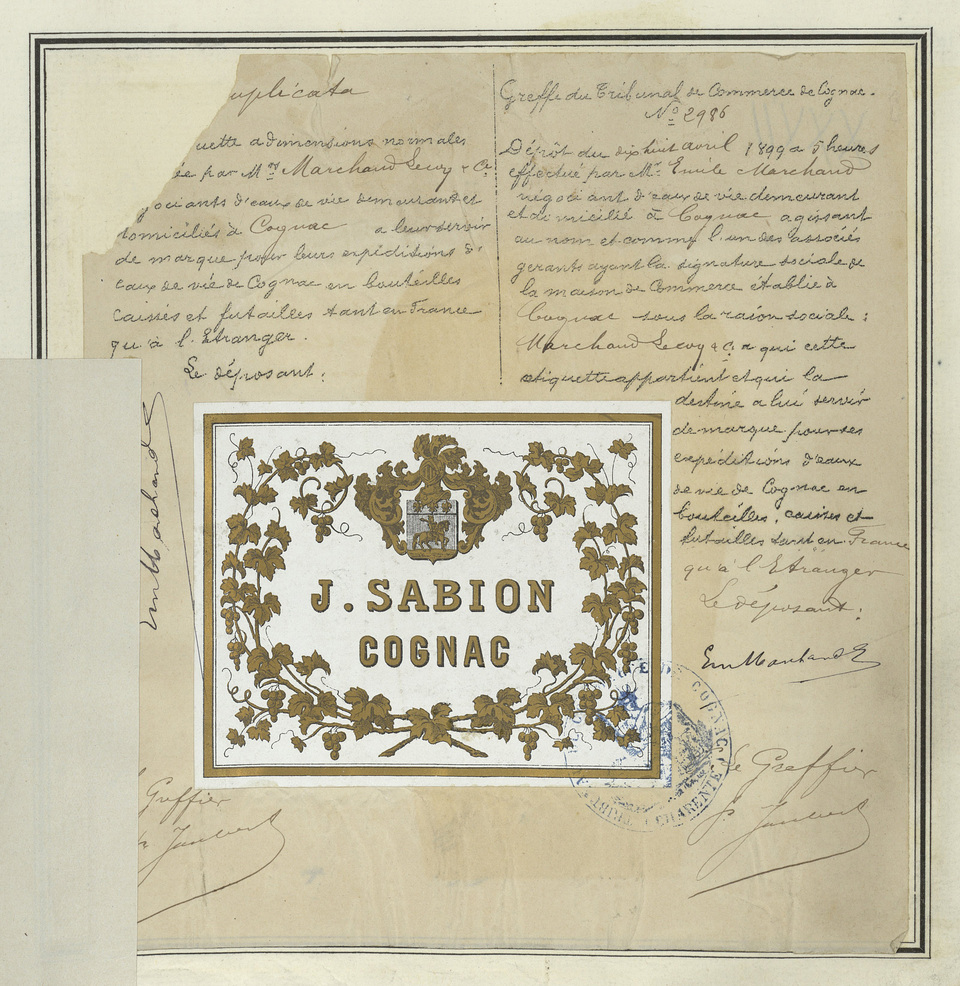 uplicata
uette a dimensions normales
ée par Mrs Marchand Lecoy & Cie
gociants d'eaux de vie demeurant et
domiciliés à Cognac a leur servir
de marque pour leurs expéditions d'
eaux de vie de Cognac en bouteilles
caisses et futailles tant en France
qu'à l'Etranger.
Le déposant:
Em Marchand
Greffier
Jaubert
Greffe du Tribunal de Commerce de Cognac.
No 2986
Dépôt du dix huit avril 1899 a 5 heures
effectué par Mr Emile Marchand
négociant d'eaux de vie demeurant
et domicilié à Cognac agissant
au nom et comme l'un des associés
gerants ayant la signature sociale de
la maison de Commerce établie à
Cognac sous la raison sociale:
Marchand Lecoy & Cie a qui cette
etiquette appartient et qui la
destine a lui servir
de marque pour ses
expéditions d'eaux
de vie de Cognac en
bouteilles, caisses et
futailles tant en France
qu'à l'Etranger
Le déposant:
Em Marchand
Le Greffier
Jaubert
J. SABION
COGNAC
DE COGNAC
CHARENTE